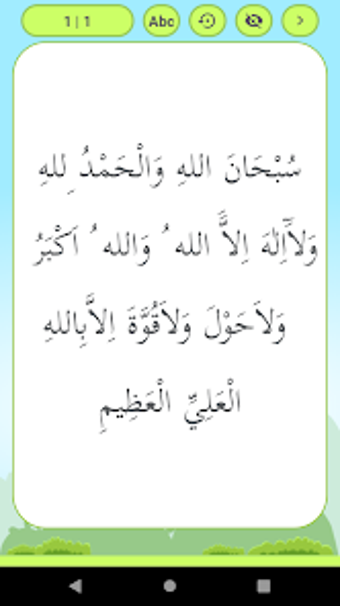 1 | 1
Abc
سُبْحَانَ اللهِ وَالْحَمْدُ ِللهِ
وَلَآاِلٰهَ اِلاَّ الله ُ وَالله ُ اَكْبَرُ
وَلاَحَوْلَ وَلاَقُوَّةَ اِلاَّبِاللهِ
الْعَلِيِّ الْعَظِيمِ